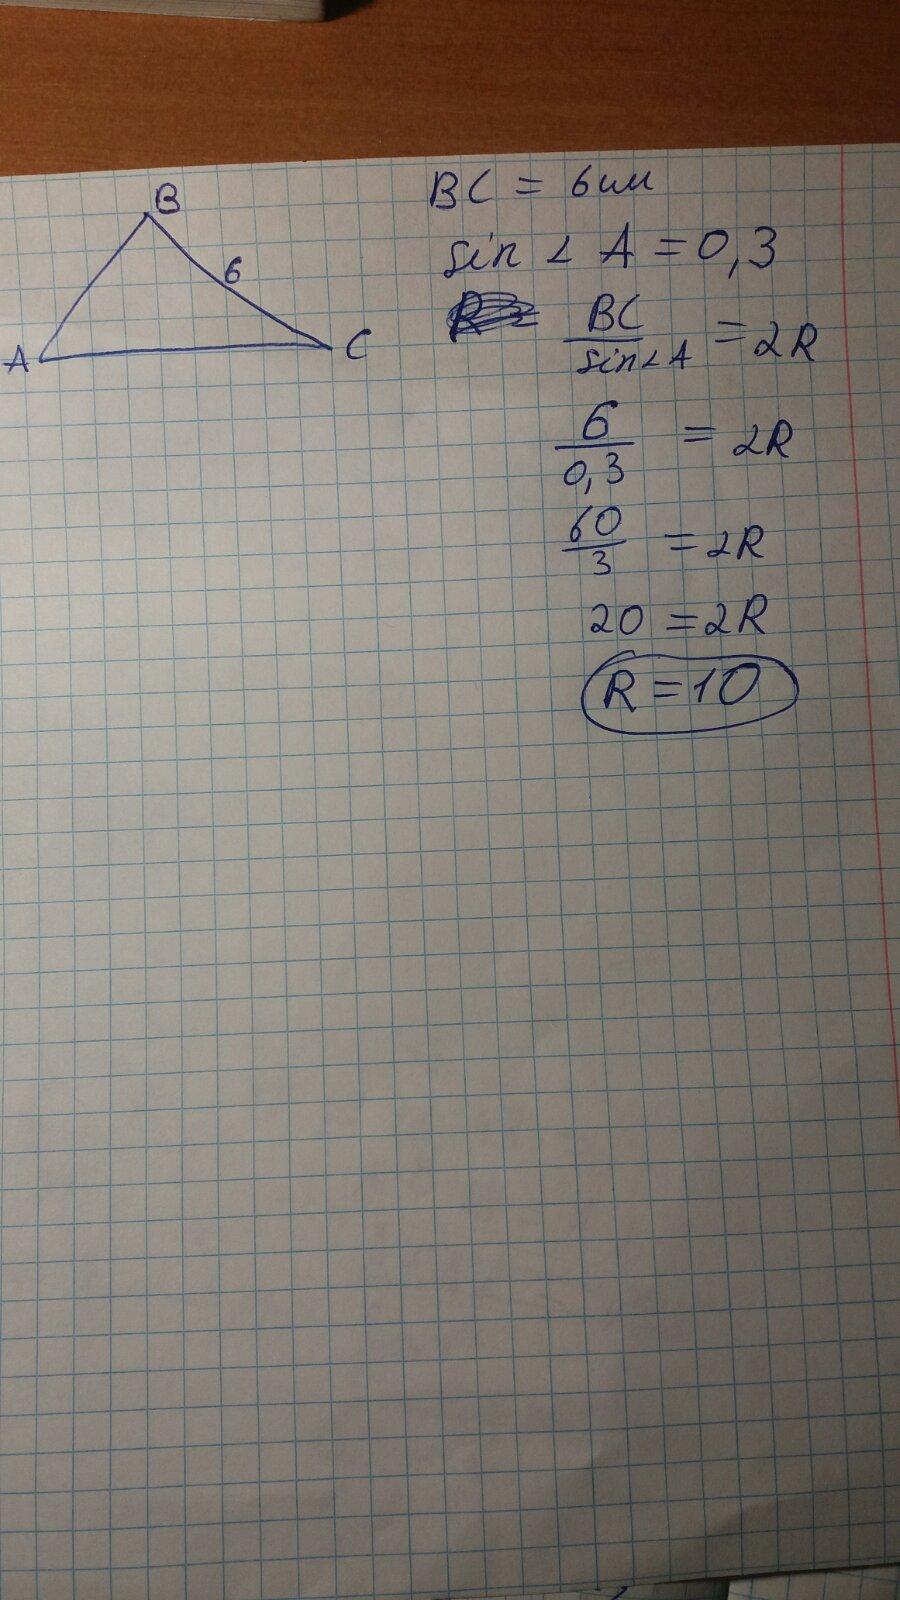 B
6
A
C
BC = 6см
sin ∠ A = 0,3
BC / sin∠A = 2R
6 / 0,3 = 2R
60 / 3 = 2R
20 = 2R
R = 10